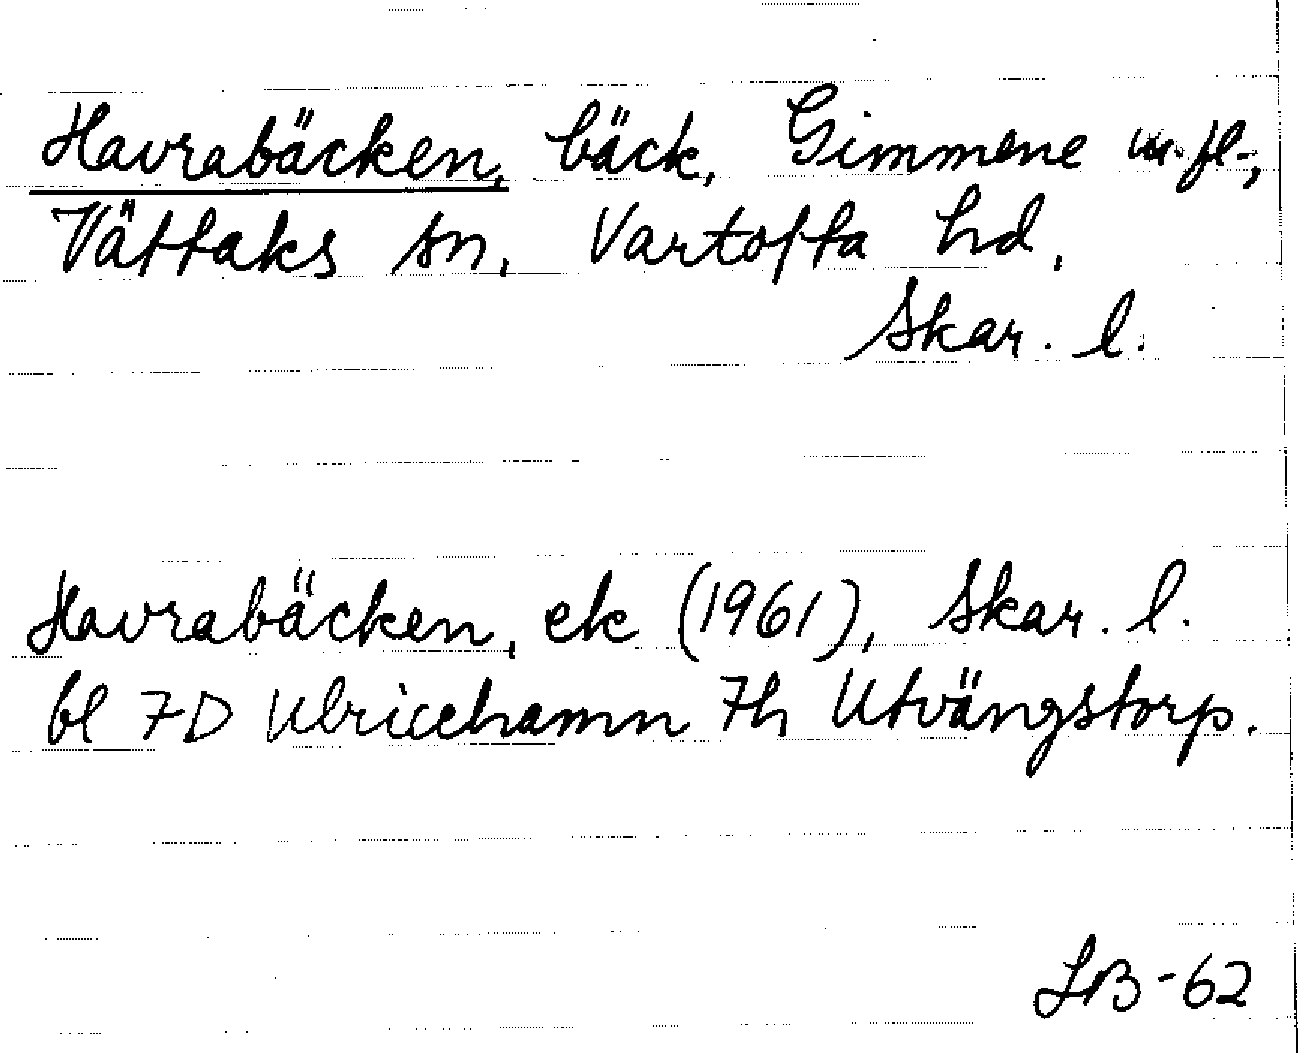 Havrabäcken, bäck, Gimmene m.fl.,
Vättaks sn, Vartofta hd,
Skar. l.
Havrabäcken, ek (1961), Skar. l.
bl 7D Ulricehamn 7h Utvängstorp.
LB-62